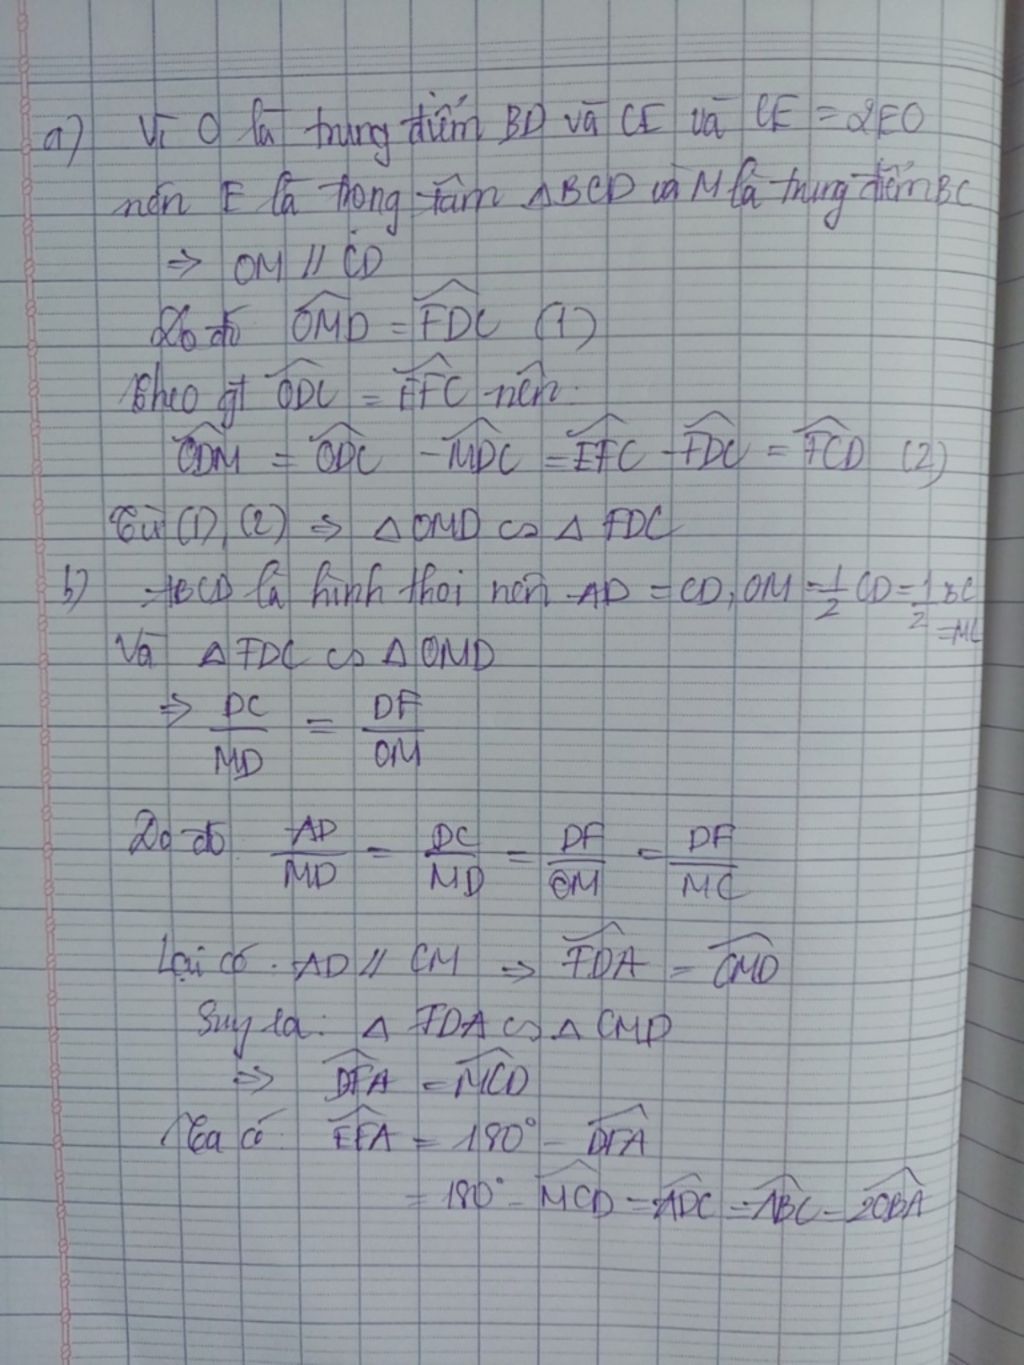 a) Vì O là trung điểm BD và CE và CE = 2EO
nên E là trọng tâm △BCD và M là trung điểm BC
⇒ OM // CD
Do đó \widehat{OMD} = \widehat{FDC} (1)
Theo gt \widehat{ODC} = \widehat{EFC} nên:
\widehat{ODM} = \widehat{ODC} - \widehat{MDC} = \widehat{EFC} - \widehat{FDC} = \widehat{FCD} (2)
Từ (1), (2) ⇒ △OMD ∽ △FDC
b) ABCD là hình thoi nên AD = CD, OM = 1/2 CD = 1/2 BC = MC
Và △FDC ∽ △OMD
⇒ DC/MD = DF/OM
Do đó AD/MD = DC/MD = DF/OM = DF/MC
Lại có. AD // CM ⇒ \widehat{FDA} = \widehat{CMD}
Suy ra: △FDA ∽ △CMD
⇒ \widehat{DFA} = \widehat{MCD}
Ta có \widehat{EFA} = 180° - \widehat{DFA}
= 180° - \widehat{MCD} = \widehat{ADC} = \widehat{ABC} = 2\widehat{OBA}